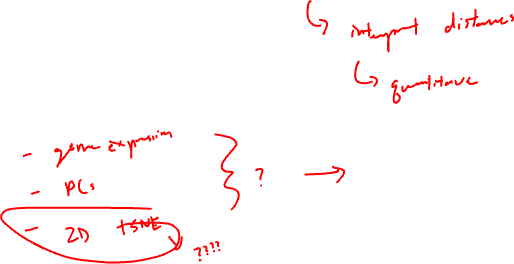 ↳ interpret distances
↳ quantitative
- gene expression
- PCs
} ? →
- 2D tSNE
????